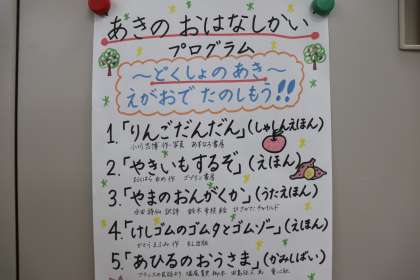 あきの おはなしかい
プログラム
～どくしょのあき～
えがおで たのしもう!!
1.「りんごだんだん」(しゃしんえほん)
小川忠博 作・写真 あすなろ書房
2.「やきいもするぞ」(えほん)
おくはらゆめ 作 ゴブリン書房
3.「やまのおんがくか」(うたえほん)
水田詩仙 訳詩
4.「けしゴムのゴムタとゴムゾー」(えほん)
作
5.「あひるのおうさま」(かみしばい)
フランスの民話より 堀尾青史 脚本 田島征三 画 童心社